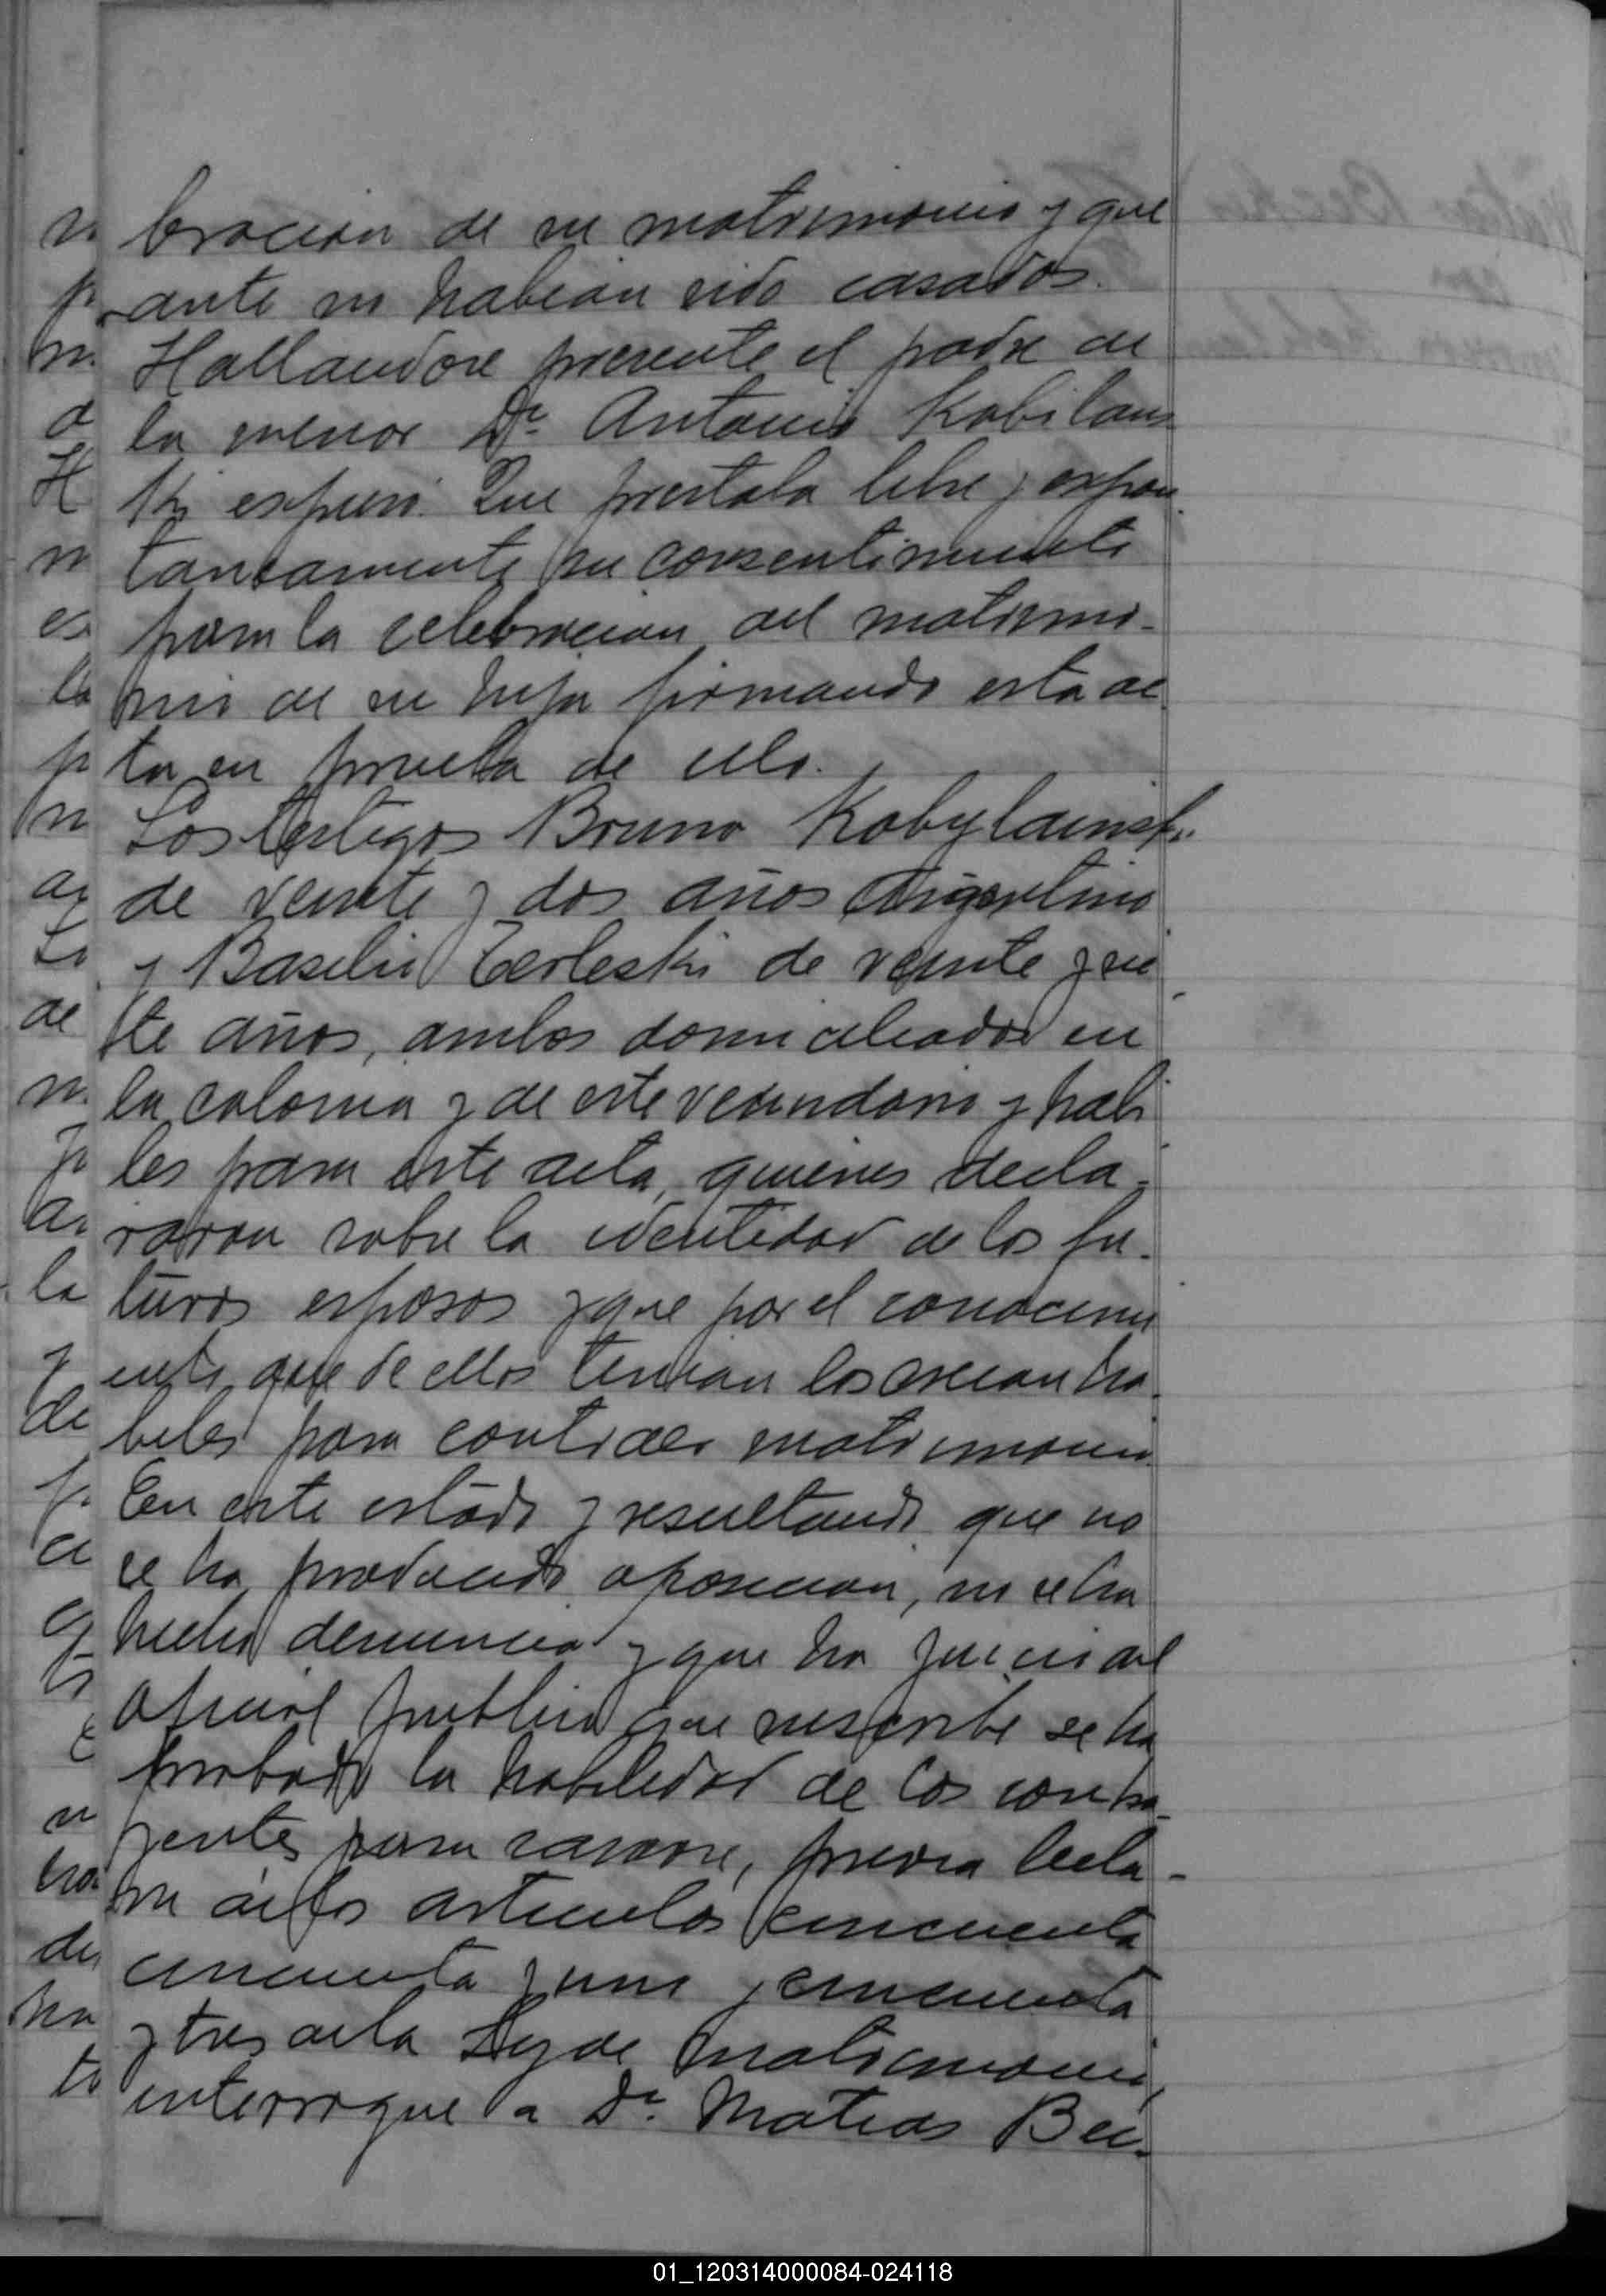 bracion de su matrimonio y que
ante no habian sido casados.
Hallandose presente el padre de
la menor Dn. Antonio Kobilans
ki espuso. Que prestaba libre y espon
taneamente su consentimiento
para la celebracion del matrimo-
nio de su hija firmando esta ac
ta en prueba de ello.
Los testigos Bruno Kobylainski
de veinte y dos años Argentino
y Basilio Terleski de veinte y sie
te años, ambos domiciliados en
la colonia y de este vecindario y habi
les para este acto, quienes decla-
raron sobre la identidad de los fu-
turos esposos y que por el conocimi
ento que de ellos tenian los creian ha-
biles para contraer matrimonio
En este estado y resultando que no
se ha producido oposicion, ni se ha
hecho denuncia y que ha juicio del
oficial publico que suscribe se ha
probado la habilidad de los contra-
yentes para casarse, previa lectu-
ra de los articulos cincuenta
cincuenta y uno y cincuenta
y tres de la Ley de Matrimonio,
interrogue a Dn. Matias Bec-
n
p
m
d
H
n
es
la
p
n
de
n
a
la
y
de
ci
q
u
de
ha
to
01_120314000084-024118